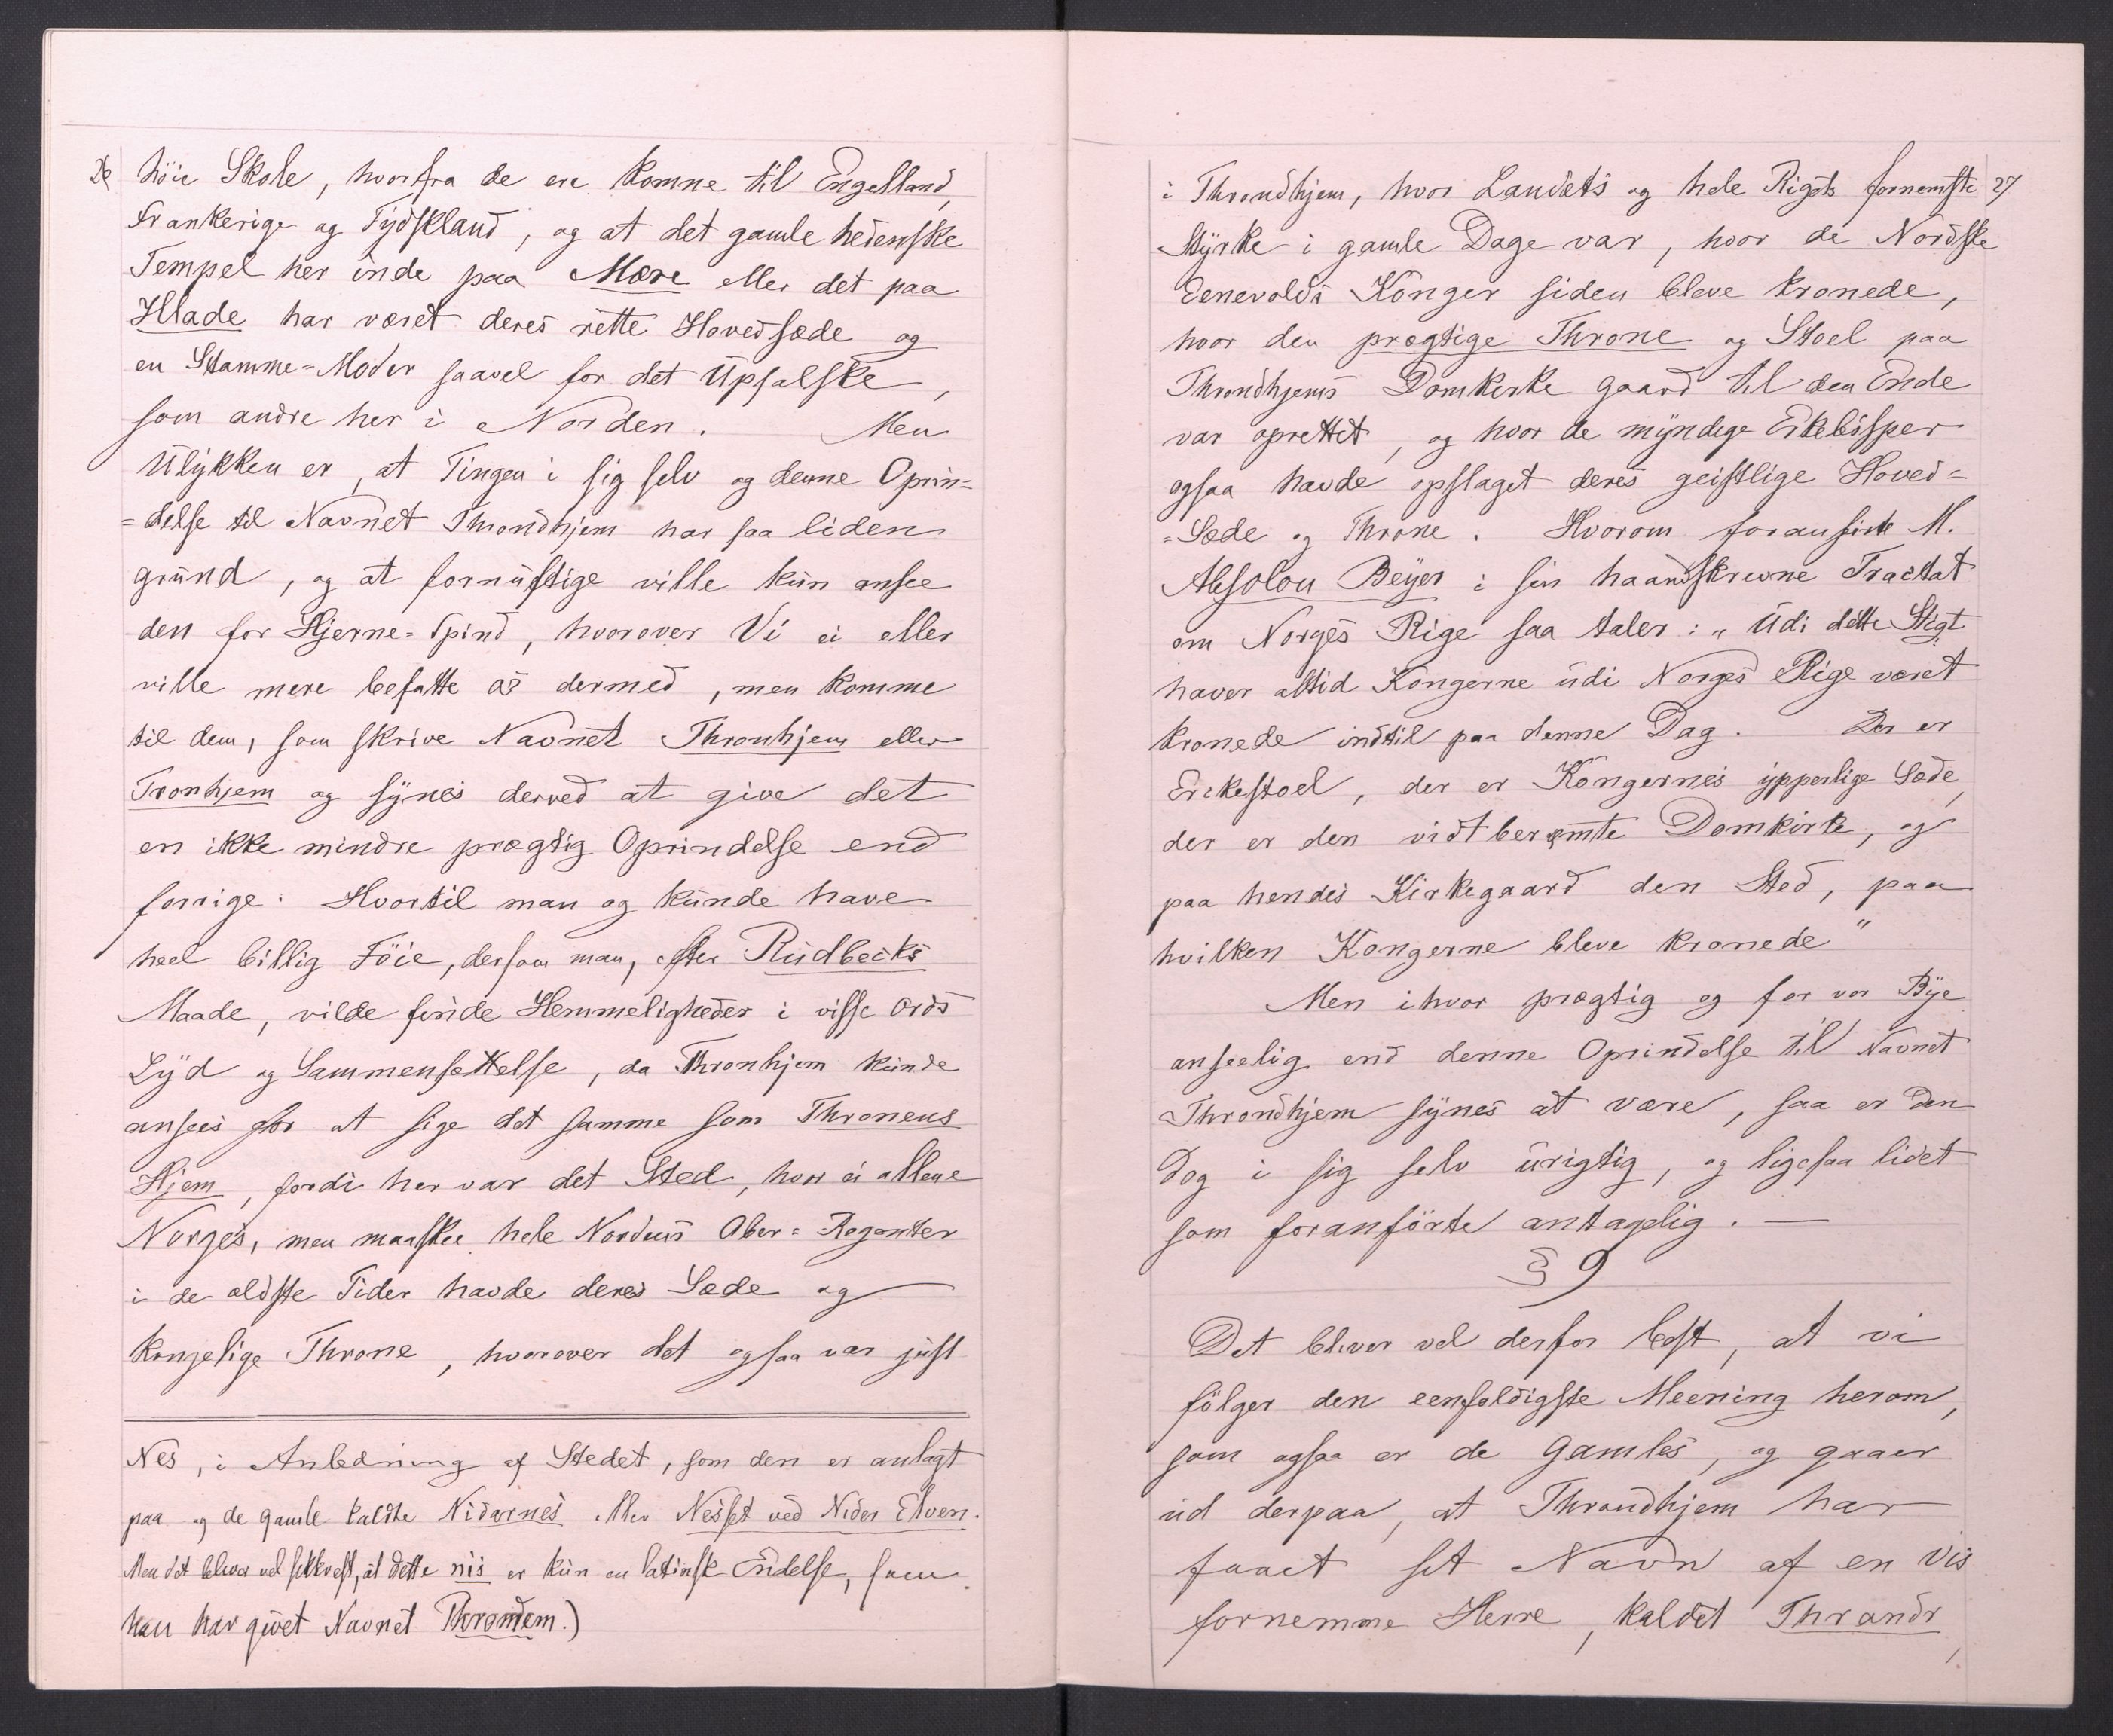 höie Skole, hvorfra de ere komne til Engelland,
Frankerige og Tydskland, og at det gamle hedenske
Tempel her inde paa Mære eller det paa
Hlade har været deres rette Hovedsæde og
en Stamme-Moder saavel for det Upsalske,
som andre her i Norden. Men
Ulykken er, at Tingen i sig selv og denne Oprin=
=delse til Navnet Throndhjem har saa liden
Grund, og at fornuftige ville kun ansee
den for Hjerne=Spind, hvorover Vi ei eller
ville mere befatte os dermed, men komme
til dem, som skrive Navnet Thronhjem eller
Tronhjem og synes derved at give det
en ikke mindre prægtig Oprindelse end
forrige. Hvortil man og kunde have
heel billig Föie, dersom man, efter Rudbecks
Maade, vilde finde Hemmeligheder i visse Ords
Lyd og Sammensettelse, da Thronhjem kunde
ansees for at sige det samme som Thronens
Hjem, fordi her var det Sted, hvor ei allene
Norges, men maaskee hele Nordens Ober=Regenter
i de ældste Tider havde deres Sæde og
kongelige Throne, hvorover det ogsaa var just
Nes, i Anledning af Stedet, som den er anlagt
paa og de gamle kaldte Nidarnes eller Nesset ved Nider Elven.
Men det bliver vel sikkrest, at dette nis er kun en latinsk Endelse, som
han har givet Navnet Throndem.)
i Throndhjem, hvor Landets og hele Rigets fornemste 27
Styrke i gamle Dage var, hvor de Nordske
Eenevolds Konger siden bleve kronede,
hvor den prægtige Throne og Stoel paa
Throndhjems Domkirke gaard til den Ende
var oprettet, og hvor de myndige Erkebisper
ogsaa havde opslaget deres geistlige Hoved=
=Sæde og Throne. Hvorom foranförte M.
Absolon Beyer i sin haandskrevne Tractat
om Norges Rige saa taler: „Udi dette Stigt
haver altid Kongerne udi Norges Rige været
kronede indtil paa denne Dag. Der er
Erckestoel, der er Kongernes ypperlige Sæde,
der er den vidtberømte Domkirke, og
paa hendes Kirkegaard den Sted, paa
hvilken Kongerne bleve kronede"
Men ihvor prægtig og for vor Bye
anseelig end denne Oprindelse til Navnet
Throndhjem synes at være, saa er den
dog i sig selv urigtig, og ligesaa lidet
som foranförte antagelig. —
§ 9
Det bliver vel derfor best, at vi
fölger den eenfoldigste Meening herom,
som ogsaa er de Gamles, og gaaer
ud derpaa, at Throndhjem har
faaet sit Navn af en vis
fornemme Herre, kaldet Thrandr,